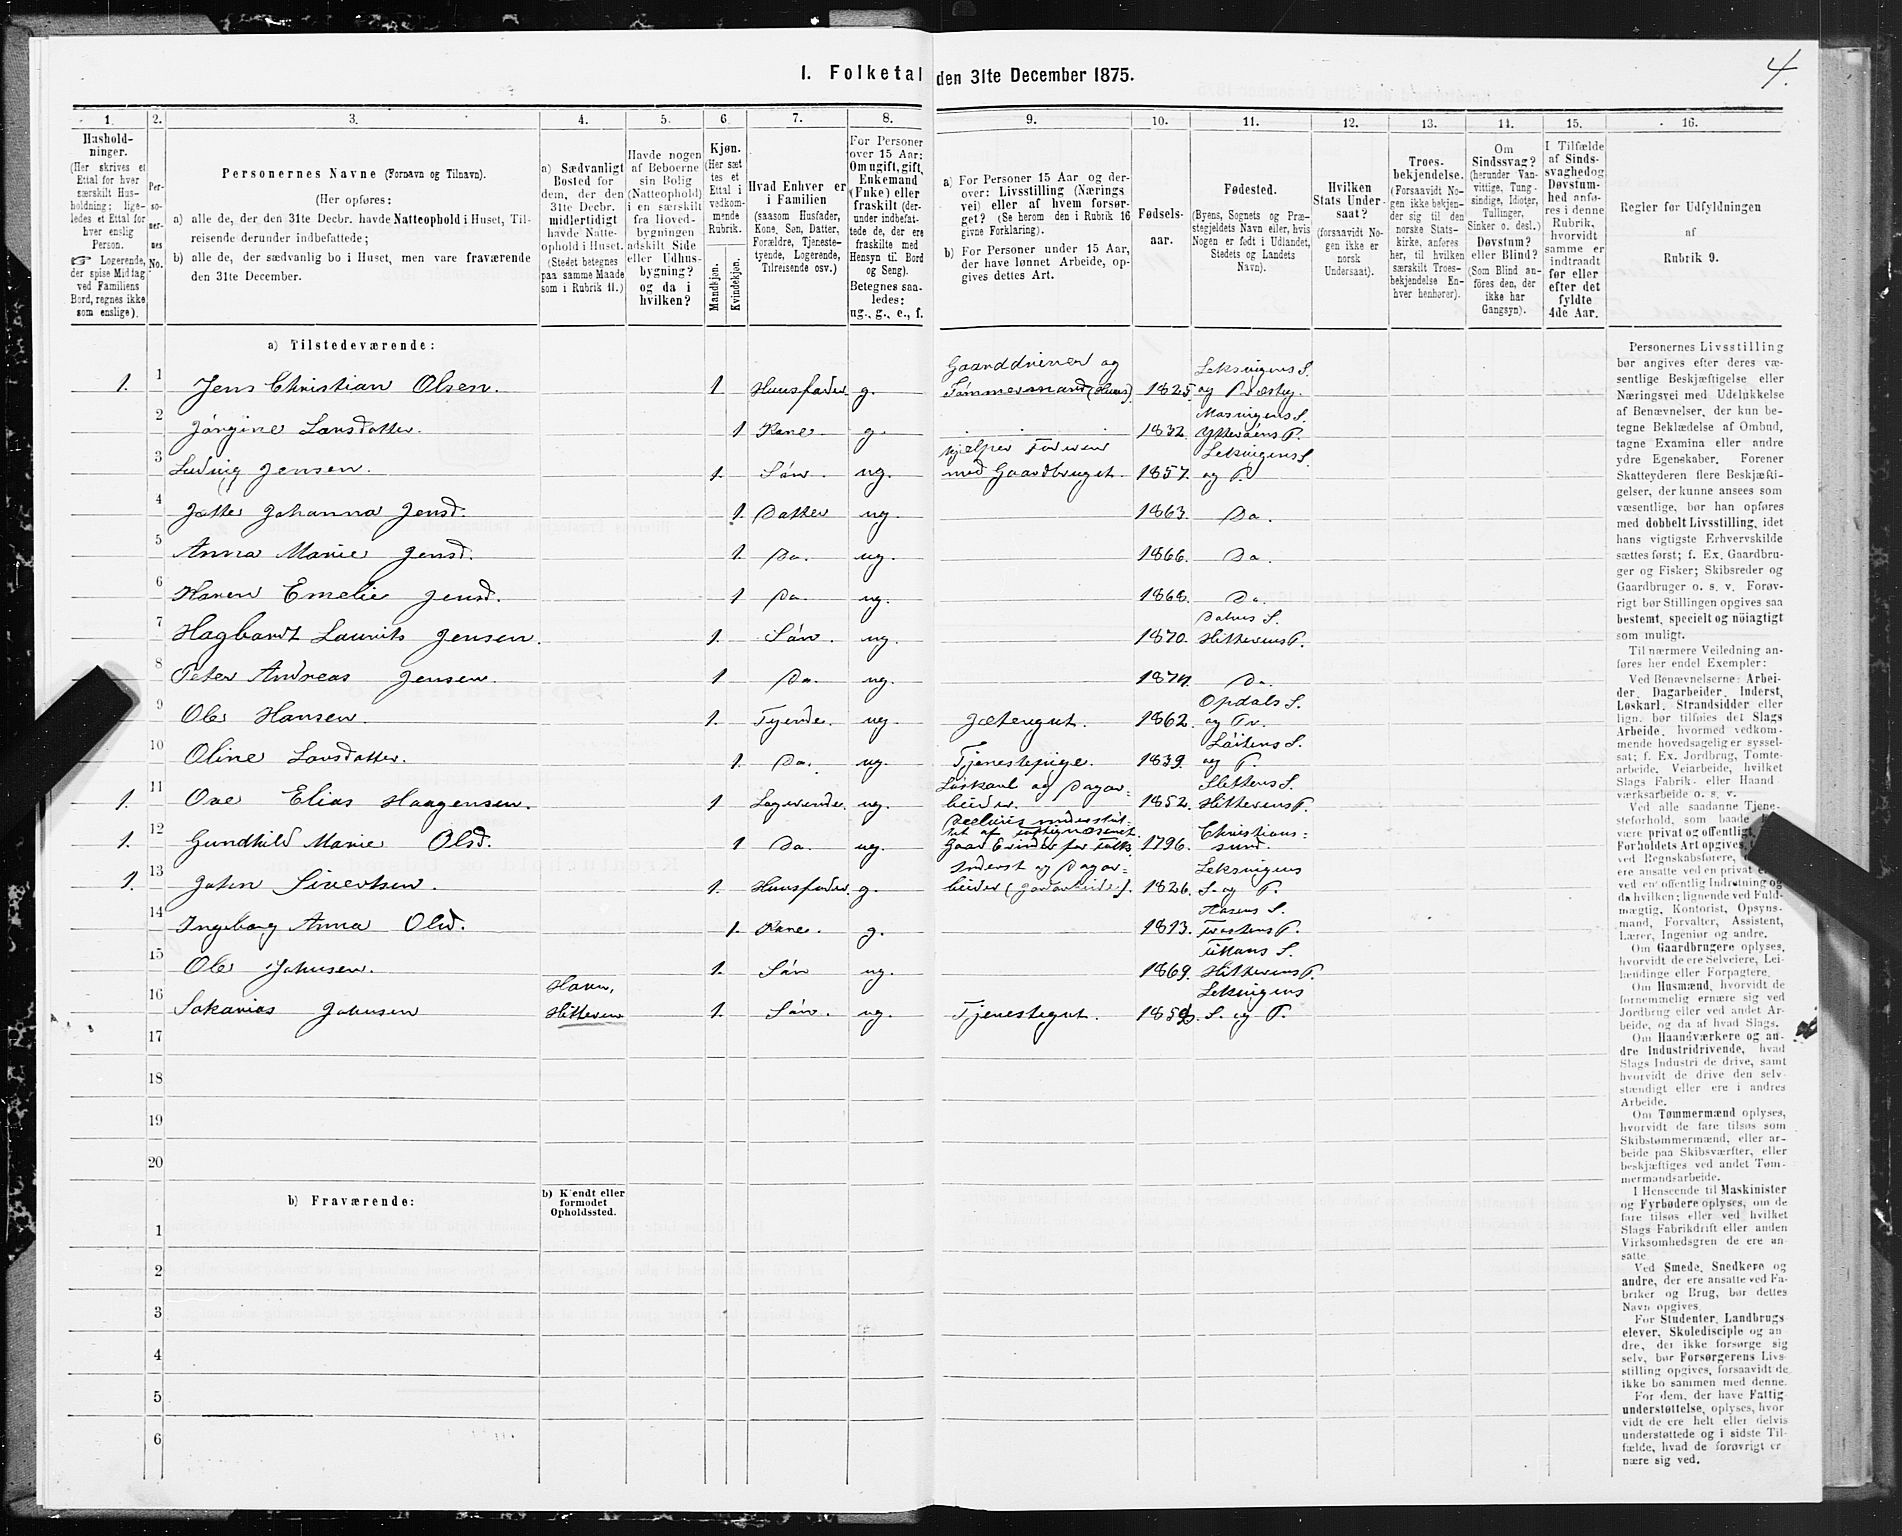 4.
I. Folketal den 31te December 1875.
1. 2. 3. 4. 5. 6. 7. 8. 9. 10. 11. 12. 13. 14. 15. 16.
Hushold-
ninger.
(Her skrives et
Ettal for hver
særskilt Hus-
holdning; lige-
ledes et Ettal for
hver enslig
Person.
☞ Logerende,
der spise Middag
ved Familiens
Bord, regnes ikke
som enslige).
Per-
so-
ner-
nes
No.
Personernes Navne (Fornavn og Tilnavn).
(Her opføres:
a) alle de, der den 31te Decbr. havde Natteophold i Huset, Til-
reisende derunder indbefattede;
b) alle de, der sædvanlig bo i Huset, men vare fraværende
den 31te December.
a) Sædvanligt
Bosted for
dem, der den
31te Decbr.
midlertidigt
havde Natte-
ophold i Huset.
(Stedet betegnes
paa samme Maade
som i Rubrik 11.)
Havde nogen
af Beboerne
sin Bolig
(Natteophold)
i en særskilt
fra Hoved-
bygningen
adskilt Side
eller Udhus-
bygning?
og da i
hvilken?
Kjøn.
(Her sæt-
tes et
Ettal i
vedkom-
mende
Rubrik.
Mandkjøn.
Kvindekjøn.
Hvad Enhver er
i Familien
(saasom Husfader,
Kone, Søn, Datter,
Forældre, Tjeneste-
tyende, Logerende,
Tilreisende osv.)
For Personer
over 15 Aar:
Om ugift, gift,
Enkemand
(Enke) eller
fraskilt (der-
under indbefat-
tede de, der ere
fraskilte med
Hensyn til Bord
og Seng).
Betegnes saa-
ledes:
ug., g., e., f.
a) For Personer 15 Aar og der-
over: Livsstilling (Nærings-
vei) eller af hvem forsør-
get? (Se herom den i Rubrik 16
givne Forklaring).
b) For Personer under 15 Aar,
der have lønnet Arbeide, op-
gives dettes Art.
Fødsels-
aar.
Fødested.
(Byens, Sognets og Præ-
stegjeldets Navn eller, hvis
Nogen er født i Udlandet,
Stedets og Landets
Navn).
Hvilken
Stats Under-
saat?
(forsaavidt No-
gen ikke er
norsk
Undersaat).
Troes-
bekjendelse.
(Forsaavidt No-
gen ikke bekjen-
der sig til den
norske Stats-
kirke, anføres
her, til hvilken
særskilt Troes-
bekjendelse En-
hver henhører).
Om
Sindssvag?
(herunder Van-
vittige, Tung-
sindige, Idioter,
Tullinger,
Sinker o. desl.)
Døvstum?
eller Blind?
(Som Blind an-
føres den, der
ikke har
Gangsyn).
I Tilfælde
af Sinds-
svaghed og
Døvstum-
hed anfø-
res i denne
Rubrik,
hvorvidt
samme er
indtraadt
før eller
efter det
fyldte
4de Aar.
Regler for Udfyldningen
af
Rubrik 9.
a) Tilstedeværende:
Gaarddriver og Leksvigens S.
1. 1 Jens Christian Olsen. 1 Huusfader g. Tømmermand (Huus). 1825. og Præstg.
Mosvigens S.
2 Jørgine Larsdatter. 1 Kone. g. 1832. Ytterøens P.
hjælper Faderen Leksvigens S.
3 Ludvig Jensen. 1. Søn. ug. med Gaardbruget. 1857. og P.
4 Jette Johanna Jensd. 1. Datter ug. 1863. Do.
5 Anna Marie Jensd. 1. Do. ug. 1866. Do.
6 Haren Emelie Jensd. 1 Do. ug. 1868. Do.
7 Hagbardt Laurits Jensen. 1. Søn. ug. 1870. Hitterens P.
8 Peter Andreas Jensen. 1 Do. ug. 1874. Do.
Opdals S.
9 Ole Hansen. 1. Tyende. ug. Jætergut. 1862. og Pr.
Løitens S.
10 Oline Larsdatter. 1. Do. ug. Tjenestepige. 1839. og P.
Løskarl og Dagar- Hitterens S.
1. 11 Ove Elias Haagensen. 1 Logerende. ug. beider. 1852. Hitterens P.
Deelviis understøt-
tet af Fattigvæsenet. Christians-
1. 12 Gundhild Marie Olsd. 1 Do. ug. Gaar Erinder for Folk. 1796. sund.
Inderst og Dagar- Leksvigens
1. 13 John Sivertsen. 1. Huusfader g. beider (Jordarbeide). 1826. S. og P.
Aasens S.
14 Ingeborg Anna Olsd. 1. Kone. g. 1813. Frostens P.
Fillans S.
15 Ole Johnsen. 1. Søn ug. 1869. Hitterens P.
Havn, Leksvigens
16 Sakarias Johnsen Hitteren 1. Søn. ug. Tjenestegut. S. og P.
17
18
19
20
b) Fraværende:
b) Kjendt eller
formodet
Opholdssted.
1
2
3
4
5
6
Personernes Livsstilling
bør angives efter deres væ-
sentlige Beskjæftigelse eller
Næringsvei med Udelukkelse
af Benævnelser, der kun be-
tegne Beklædelse af Ombud,
tagne Examina eller andre
ydre Egenskaber. Forener
Skatteyderen flere Beskjæfti-
gelser, der kunne ansees som
væsentlige, bør han opføres
med dobbelt Livsstilling, idet
hans vigtigste Erhvervskilde
sættes først; f. Ex. Gaardbru-
ger og Fisker; Skibsreder og
Gaardbruger o. s. v. Forøv-
rigt bør Stillingen opgives saa
bestemt, specielt og nöiagtigt
som muligt.
Til nærmere Veiledning an-
føres her endel Exempler:
Ved Benævnelserne: Arbei-
der, Dagarbeider, Inderst,
Løskarl, Strandsidder eller
lign. bør tilføies det Slags
Arbeide, hvormed vedkom-
mende hovedsagelig er syssel-
sat; f. Ex. Jordbrug, Tomte-
arbeide, Veiarbeide, hvilket
Slags Fabrik- eller Haand-
værksarbeide o. s. v.
Ved alle saadanne Tjene-
steforhold, som baade
være privat og offentligt,
Forholdets Art opgives,
ved Regnskabsførere,
ere ansatte ved en privat
ved en offentlig Indretning og
da hvilken; lignende ved Fuld-
mægtig, Kontorist, Opsyns-
mand, Forvalter, Assistent,
Lærer, Ingeniør og andre.
Om Gaardbrugere oplyses,
hvorvidt de ere Selveiere, Lei-
lændinge eller Forpagtere.
Om Husmænd, hvorvidt de
fornemmelig ernære sig ved
Jordbrug eller ved andet Ar-
beide, og da af hvad Slags.
Om Haandværkere og an-
dre Industridrivende, hvad
Slags Industri de drive, samt
hvorvidt de drive den selv-
stændigt eller ere i andres
Arbeide.
Om Tømmermænd oplyses,
hvorvidt de fare tilsøs som
Skibstømmermænd, eller ar-
beide paa Skibsværfter, eller
beskjæftiges ved andet Tøm-
mermandsarbeide.
I Henseende til Maskinister
og Fyrbødere oplyses, om de
fare tilsøs eller ved hvilket
Slags Fabrikdrift eller anden
Virksomhedsgren de ere an-
satte.
Ved Smede, Snedkere og
andre, der ere ansatte ved Fa-
briker og Brug, bør dettes
Navn opgives.
For Studenter, Landbrugs-
elever, Skoledisciple og an-
dre, der ikke forsørge sig
selv, bør Forsørgerens Livs-
stilling opgives, forsaavidt de
ikke bo sammen med denne.
For dem, der have Fattig-
understøttelse, oplyses, hvor-
vidt de ere helt eller delvis
understøttede og i sidste Til-
fælde, hvad de forøvrigt er-
nære sig ved.